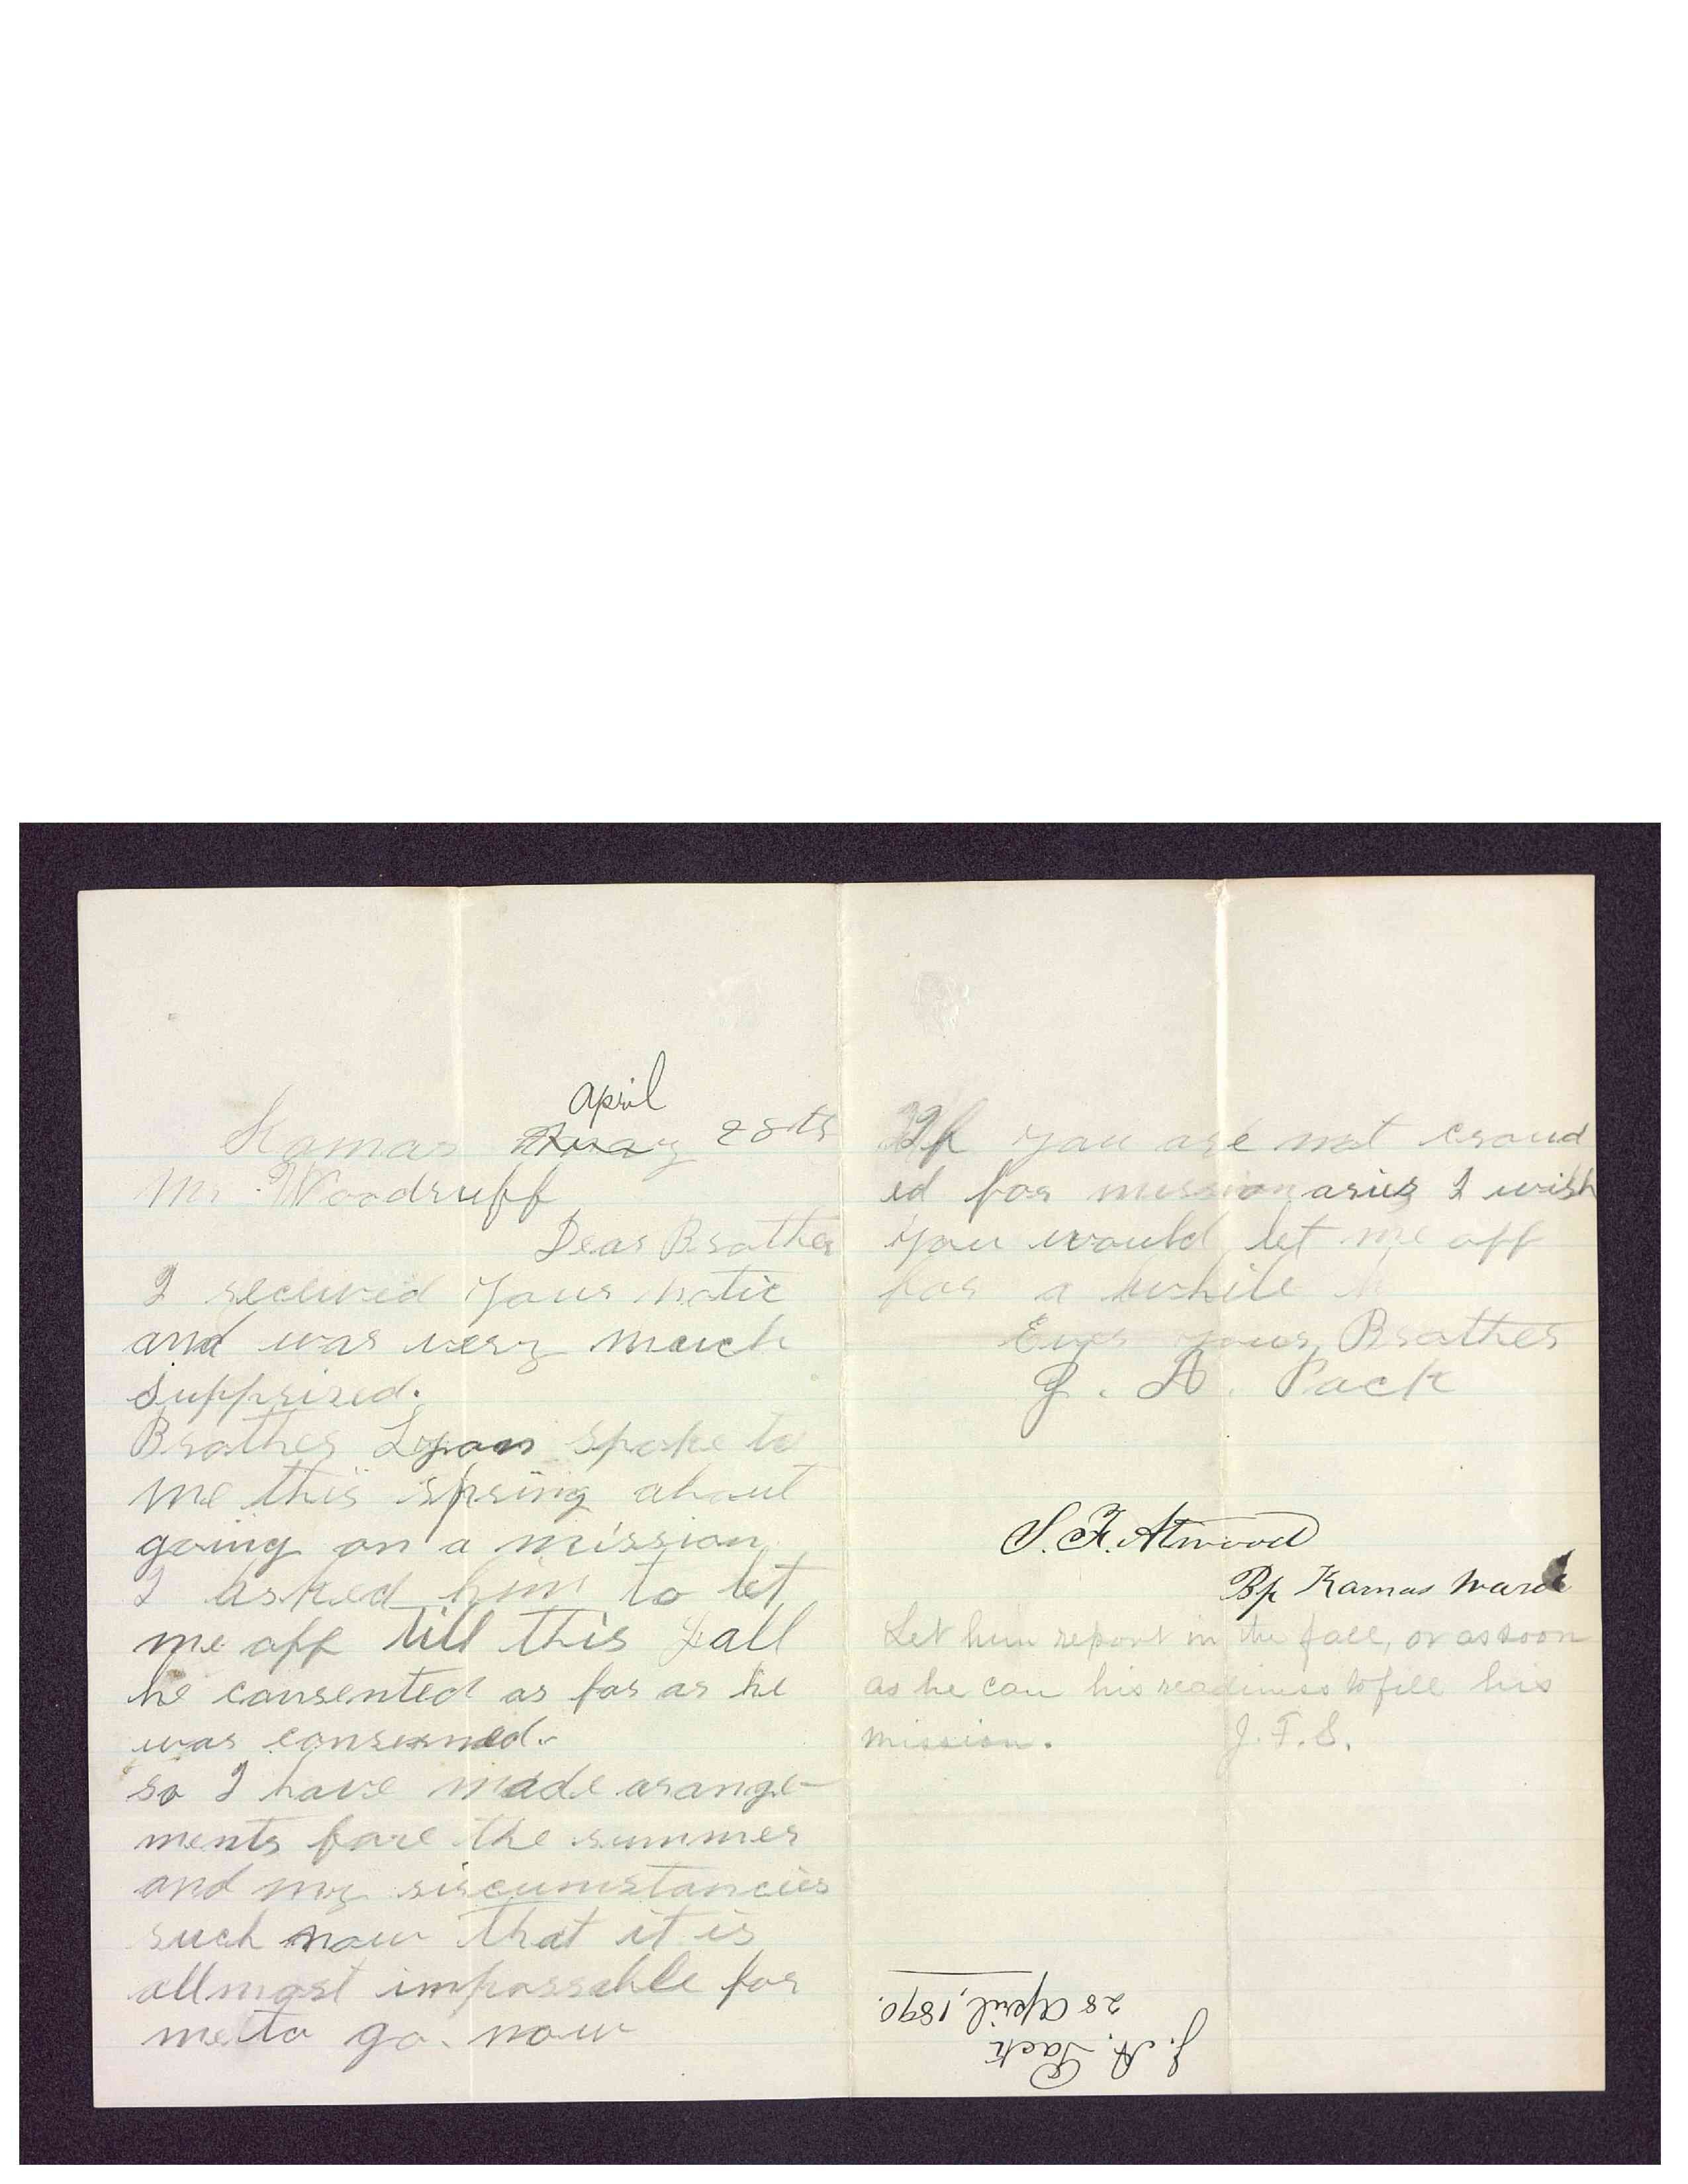 April
Kamas May 28th
Mr Woodruff
Dear Brother
I received your notic
and was very mutch
supprised.
Brother Lyons spoke to
me this spring about
going on a mission
I asked him to let
me off till this Fall
he consented as far as he
was conserned.
so I have made arange-
ments fore the summer
and my sircumstancies
such now that it is
allmost impossable for
me to go. now
If you are not croud
ed for missionaries I wish
you would let me off
for a while
Ever your Brother
J. A. Pack
S. F. Atwood
Bp Kamas Ward
Let him report in the fall, or as soon
as he can his readiness to fill his
mission. J. F. S.
J. A. Pack
28 April, 1890.